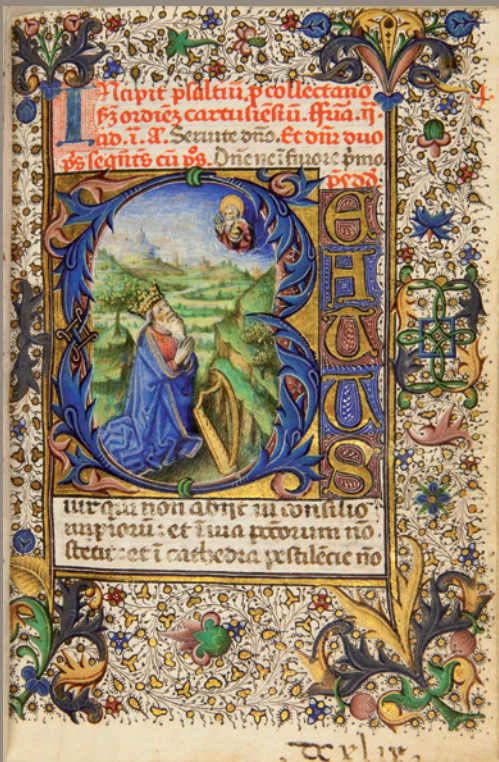 INcipit psaltiū. p collectario
scďz ordiēz cartusiesiū. ffria. ij
ad. i. A. Seruite dño. Et dñr duo
p̄s seqñts cū p̄s. Dñe ne i furore pmo
BEATUS
uir qui non abijt in consilio
impiorum: et ī uia pctorum nō
stetit: et ī cathedra pestilēcie nō
xlix